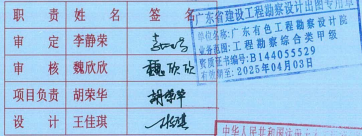 职 责 姓 名 签 名
审 定 李静荣
审 核 魏欣欣 魏欣欣
项目负责 胡荣华 胡荣华
设 计 王佳琪
广东省建设工程勘察设计出图专用章
单位名称:广东有色工程勘察设计院
业务范围:工程勘察综合类甲级
资质证书编号:B144055529
有效期至:2025年04月03日
中华人民共和国注册